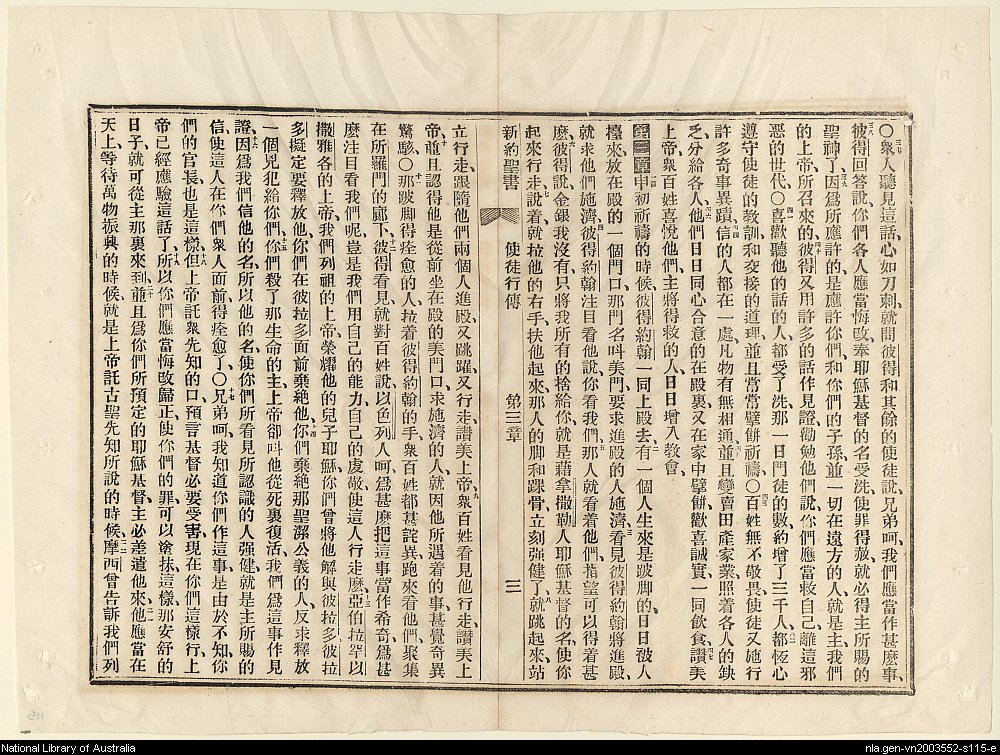 ○衆人聽見這話、心如刀刺、就問彼得和其餘的使徒說、兄弟呵、我們應當作甚麽事、
彼得回答說、你們各人應當悔改、奉耶穌基督的名受洗、使罪得赦、就必得主所賜的
聖神了、因爲所應許的、是應許你們、和你們的子孫、並一切在遠方的人、就是主我們
的上帝所召來的、彼得又用許多的話作見證、勸勉他們說、你們應當救自己、離這邪
惡的世代、○喜歡聽他的話的人、都受了洗、那一日門徒的數、約增了三千人、都恆心
遵守使徒的教訓、和交接的道理、並且常常擘餅祈禱、○百姓無不敬畏、使徒又施行
許多奇事異蹟、信的人都在一處、凡物有無相通、並且變賣田產家業、照着各人的缺
乏、分給各人、他們日日同心合意的在殿裏、又在家中擘餅、歡喜誠實、一同飲食、讚美
上帝、衆百姓喜悅他們、主將得救的人、日日增入敎會、
第三章 申初祈禱的時候、彼得約翰一同上殿去、有一個人生來是跛脚的、日日被人
檯來、放在殿的一個門口、那門名叫美門、要求進殿的人施濟、看見彼得約翰將進殿、
就求他們施濟、彼得約翰注目看他、說、你看我們、那人就看着他們、指望可以得着甚
麽、彼得說、金銀我沒有、只將我所有的捨給你、就是藉拿撒勒人耶穌基督的名、使你
起來行走、說着、就拉他的右手、扶他起來、那人的脚和踝骨、立刻强健了、就跳起來、站
新約聖書 使徒行傳 第三章 三
立行走、跟隨他們兩個人進殿、又跳躍、又行走、讚美上帝、衆百姓看見他行走、讚美上
帝、並且認得他是從前坐在殿的美門口求施濟的人、就因他所遇着的事、甚覺奇異
驚駭、○那跛脚得痊愈的人、拉着彼得約翰的手、衆百姓都甚詫異、跑來看他們、聚集
在所羅門的廊下、彼得看見、就對百姓說、以色列人呵、爲甚麽把這事當作希奇、爲甚
麽注目看我們呢、豈是我們用自己的能力、自己的虔敬、使這人行走麽、亞伯拉罕以
撒雅各的上帝、我們列祖的上帝、榮耀他的兒子耶穌、你們曾將他解與彼拉多、彼拉
多擬定要釋放他、你們在彼拉多面前棄絶他、你們棄絶那聖潔公義的人、反求釋放
一個兇犯給你們、你們殺了那生命的主、上帝卻叫他從死裏復活、我們爲這事作見
證、因爲我們信他的名、所以他的名、使你們所看見所認識的人强健、就是主所賜的
信、使這人在你們衆人面前得痊愈了、○兄弟呵、我知道你們作這事、是由於不知、你
們的官長也是這樣、但上帝託衆先知的口、預言基督必要受害、現在你們這樣行、上
帝已經應驗這話了、所以你們應當悔改歸正、使你們的罪可以塗抹、這樣那安舒的
日子、就可從主那裏來到、並且爲你們所預定的耶穌基督、主必差遣他來、他應當在
天上、等待萬物振興的時候、就是上帝託古聖先知所說的時候、摩西曾告訴我們列
National Library of Australia
nla.gen-vn2003552-s115-e